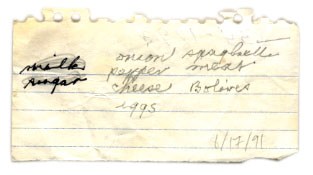 milk
sugar
onion spaghetti
pepper meat
cheese Bolives
eggs
1/17/91